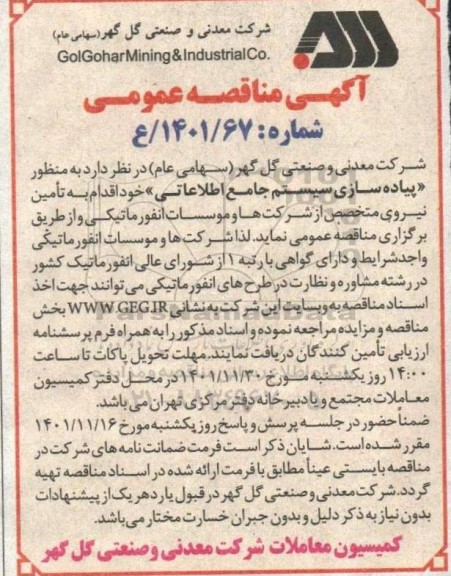 شرکت معدنی و صنعتی گل گهر (سهامی عام)
GolGohar Mining & Industrial Co.
آگهی مناقصه عمومی
شماره: ۱۴۰۱/۶۷/ع
شرکت معدنی و صنعتی گل گهر (سهامی عام) در نظر دارد به منظور
«پیاده سازی سیستم جامع اطلاعاتی» خود اقدام به تأمین
نیروی متخصص از شرکت ها و موسسات انفورماتیکی و از طریق
برگزاری مناقصه عمومی نماید. لذا شرکت ها و موسسات انفورماتیکی
واجد شرایط و دارای گواهی با رتبه ۱ از شورای عالی انفورماتیک کشور
در رشته مشاوره و نظارت در طرح های انفورماتیکی می توانند جهت اخذ
اسناد مناقصه به وبسایت این شرکت به نشانی WWW.GEG.IR بخش
مناقصه و مزایده مراجعه نموده و اسناد مذکور را به همراه فرم پرسشنامه
ارزیابی تأمین کنندگان دریافت نمایند. مهلت تحویل پاکات تا ساعت
۱۴:۰۰ روز یکشنبه مورخ ۱۴۰۱/۱۱/۳۰ در محل دفتر کمیسیون
معاملات مجتمع و یا دبیرخانه دفتر مرکزی تهران می باشد.
ضمناً حضور در جلسه پرسش و پاسخ روز یکشنبه مورخ ۱۴۰۱/۱۱/۱۶
مقرر شده است. شایان ذکر است فرمت ضمانت نامه های شرکت در
مناقصه بایستی عیناً مطابق با فرمت ارائه شده در اسناد مناقصه تهیه
گردد. شرکت معدنی و صنعتی گل گهر در قبول یا رد هر یک از پیشنهادات
بدون نیاز به ذکر دلیل و بدون جبران خسارت مختار می باشد.
کمیسیون معاملات شرکت معدنی و صنعتی گل گهر